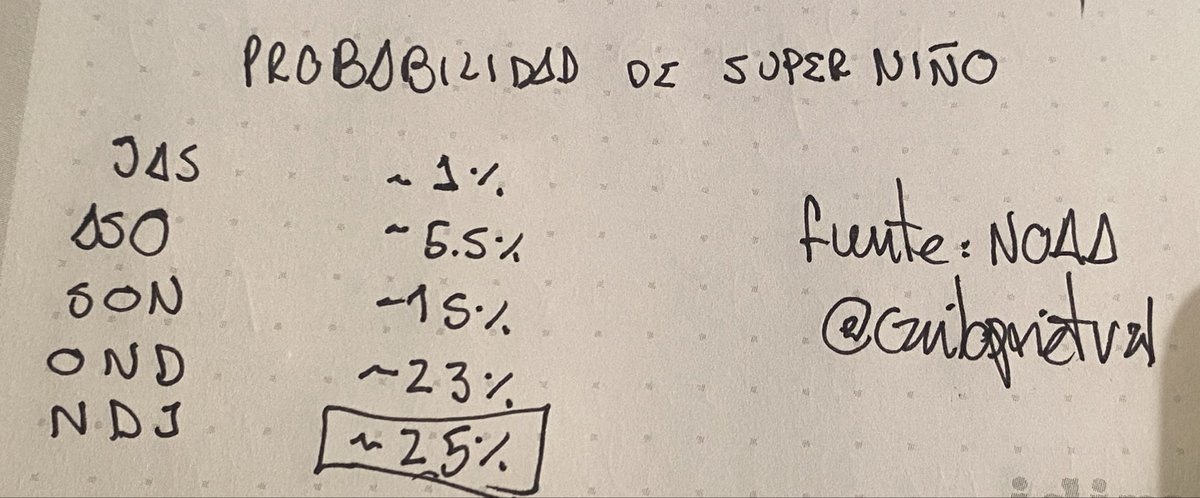 PROBABILIDAD DE SUPER NIÑO
JAS ~1%
ASO ~5.5%
SON ~15%
OND ~23%
NDJ ~25%
fuente: NOAA